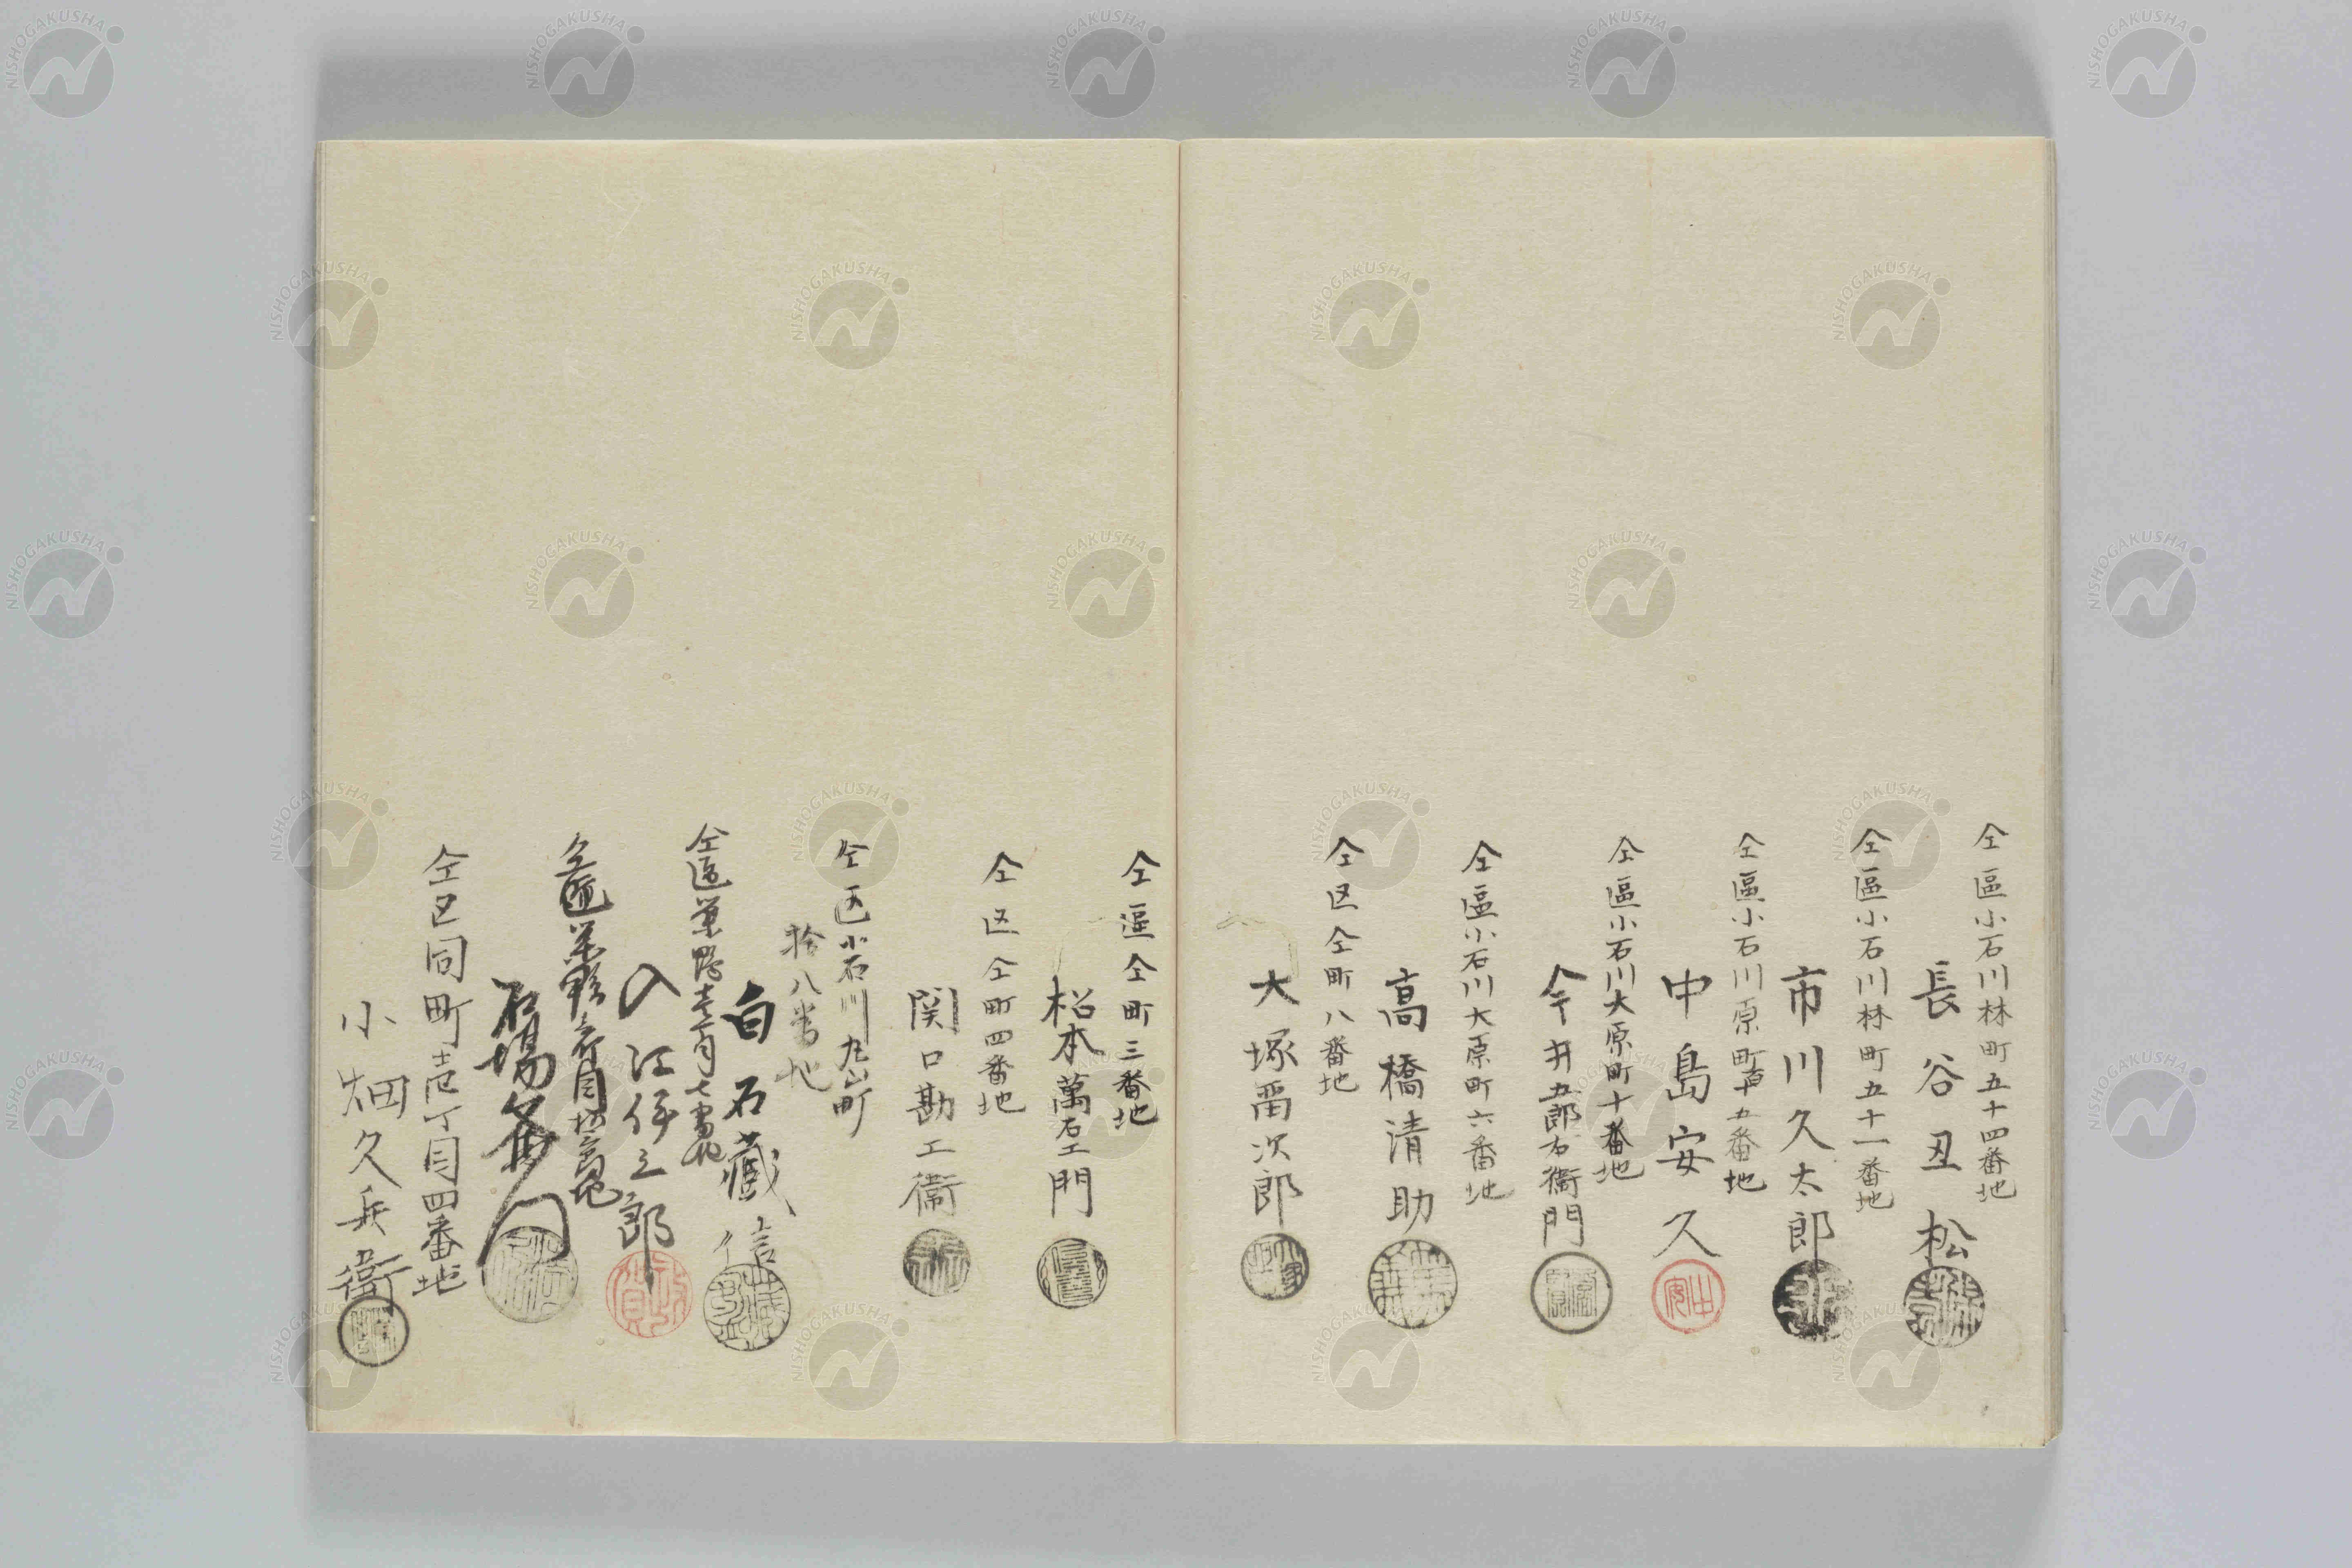 仝區小石川林町五十四番地
長谷丑松
仝區小石川林町五十一番地
市川久太郎
仝區小石川原町百十五番地
中島安久
仝區小石川大原町十番地
今井五郎右衞門
仝區小石川大原町六番地
高橋清助
仝区仝町八番地
大塚留次郎
仝區仝町三番地
松本萬右エ門
仝区仝町四番地
関口勘工衞
仝区小石川丸山町
拾八番地
白石藏信
仝區巣鴨壱丁目七番地
入江伊之郎
仝區巣鴨壱丁目
石場
仝区同町壱丁目四番地
小畑久兵衞
NISHOGAKUSHA